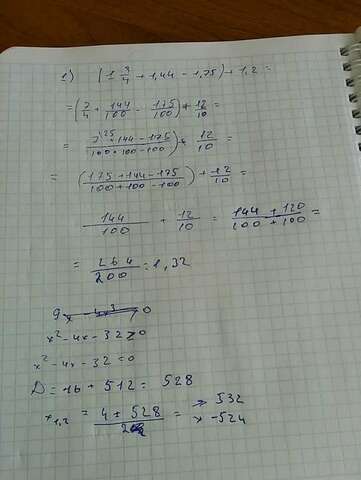 1) (1 3/4 + 1,44 - 1,75) + 1,2 =
= (7/4 + 144/100 - 175/100) + 12/10 =
= (7^25 + 144 - 175 / 100 + 100 - 100) + 12/10 =
= (175 + 144 - 175 / 100 + 100 - 100) + 12/10 =
144/100 + 12/10 = 144 + 120 / 100 + 100 =
= 264/200 = 1,32
x² - 4x - 32 ≥ 0
x² - 4x - 32 = 0
D = 16 + 512 = 528
x1,2 = 4 ± 528 / 2 = → 532
→ -524